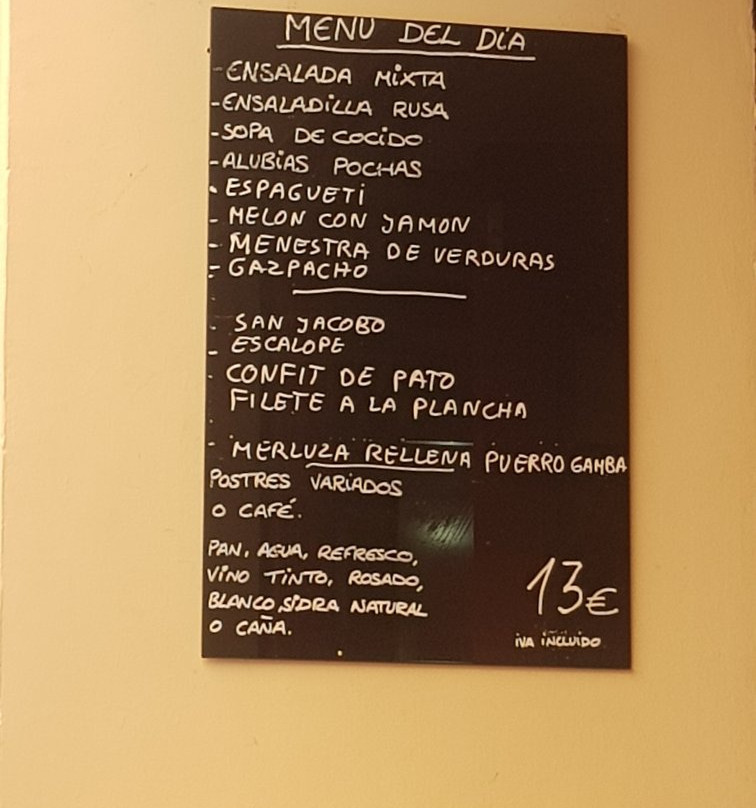 MENU DEL DíA
-ENSALADA MiXTA
-ENSALADiLLA RUSA
-SOPA DE COCiDO
-ALUBiAS POCHAS
-ESPAGUETi
-MELON CON JAMON
-MENESTRA DE VERDURAS
-GAZPACHO
-SAN JACOBO
-ESCALOPE
-CONFIT DE PATO
FILETE A LA PLANCHA
-MERLUZA RELLENA PUERRO GAMBA
POSTRES VARiADOS
O CAFÉ.
PAN, AGUA, REFRESCO,
ViNO TiNTO, ROSADO,
BLANCO, SiDRA NATURAL
O CAÑA.
13€
iVA iNCLUiDO